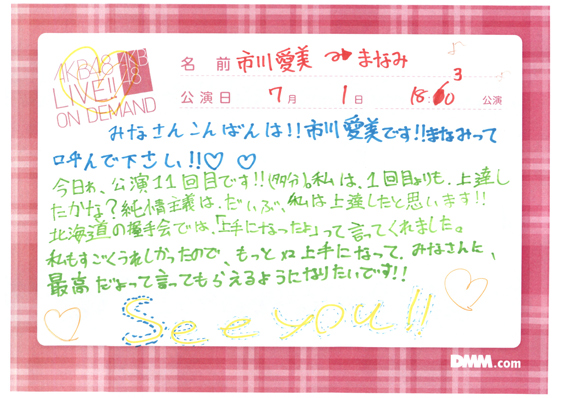 AKB48
LIVE!!
ON DEMAND
AKB
48
名 前 市川愛美 まなみ
公演日 7月 1日 18:30 公演
みなさんこんばんは!!市川愛美です!!まなみって
呼んで下さい!!♡ ♡
今日わ、公演11回目です!!(多分)。私は、1回目よりも、上達し
たかな?純情主義は、だいぶ、私は上達したと思います!!
北海道の握手会では、「上手になったよ」って言ってくれました。
私もすごくうれしかったので、もっと×2上手になって、みなさんに、
最高だよって言ってもらえるようになりたいです!!
See you!!
DMM.com